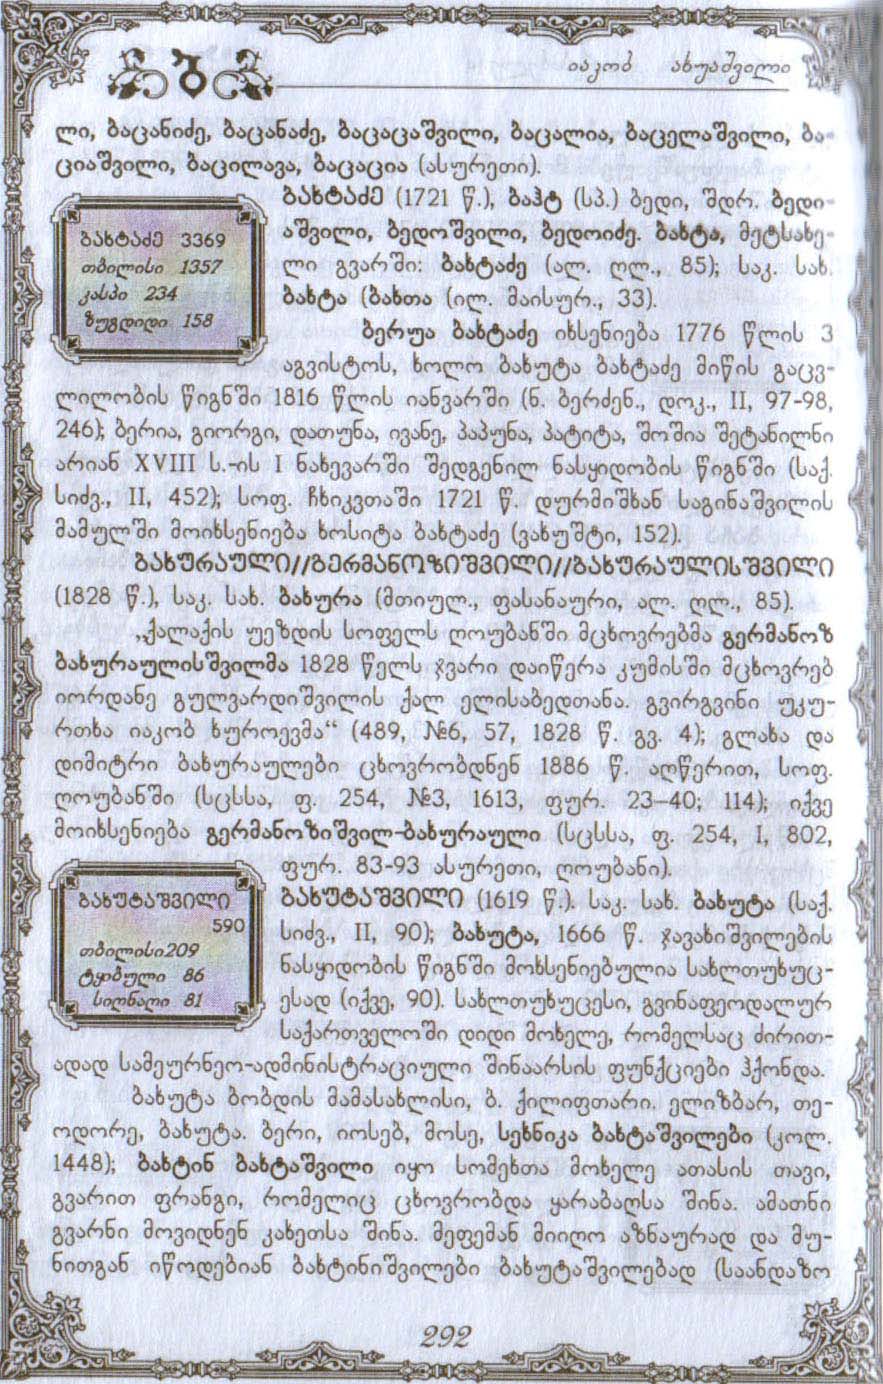 იაკობ ახუაშვილი
ლი, ბაცანიძე, ბაცანაძე, ბაცაცაშვილი, ბაცალია, ბაცელაშვილი, ბა-
ციაშვილი, ბაცილავა, ბაცაცია (ასურეთი).
ბახტაძე (1721 წ.), ბაჰტ (სპ.) ბედი, შდრ. ბედი-
აშვილი, ბედოშვილი, ბედოიძე. ბახტა, მეტსახე-
ლი გვარში: ბახტაძე (ალ. ღლ., 85); საკ. სახ.
ბახტა (ბახთა (ილ. მაისურ., 33).
ბახტაძე 3369
თბილისი 1357
კასპი 234
ზუგდიდი 158
ბერუა ბახტაძე იხსენიება 1776 წლის 3
აგვისტოს, ხოლო ბახუტა ბახტაძე მიწის გაცვ-
ლილობის წიგნში 1816 წლის იანვარში (ნ. ბერძენ., დოკ., II, 97-98,
246); ბერია, გიორგი, დათუნა, ივანე, პაპუნა, პატიტა, შოშია შეტანილნი
არიან XVIII ს.-ის I ნახევარში შედგენილ ნასყიდობის წიგნში (საქ.
სიძვ., II, 452); სოფ. ჩხიკვთაში 1721 წ. დურმიშხან საგინაშვილის
მამულში მოიხსენიება ხოსიტა ბახტაძე (ვახუშტი, 152).
ბახურაული//გერმანოზიშვილი//ბახურაულისშვილი
(1828 წ.), საკ. სახ. ბახურა (მთიულ., ფასანაური, ალ. ღლ., 85).
„ქალაქის უეზდის სოფელს ღოუბანში მცხოვრებმა გერმანოზ
ბახურაულისშვილმა 1828 წელს ჯვარი დაიწერა კუმისში მცხოვრებ
იორდანე გულვარდიშვილის ქალ ელისაბედთანა. გვირგვინი უკუ-
რთხა იაკობ ხუროევმა“ (489, №6, 57, 1828 წ. გვ. 4); გლახა და
დიმიტრი ბახურაულები ცხოვრობდნენ 1886 წ. აღწერით, სოფ.
ღოუბანში (სცსსა, ფ. 254, №3, 1613, ფურ. 23–40; 114); იქვე
მოიხსენიება გერმანოზიშვილ-ბახურაული (სცსსა, ფ. 254, I, 802,
ფურ. 83-93 ასურეთი, ღოუბანი).
ბახუტაშვილი (1619 წ.). საკ. სახ. ბახუტა (საქ.
სიძვ., II, 90); ბახუტა, 1666 წ. ჯავახიშვილების
ნასყიდობის წიგნში მოხსენიებულია სახლთუხუც-
ესად (იქვე, 90). სახლთუხუცესი, გვინაფეოდალურ
საქართველოში დიდი მოხელე, რომელსაც ძირით-
ბახუტაშვილი
590
თბილისი209
ტყიბული 86
სიღნაღი 81
ადად სამეურნეო-ადმინისტრაციული შინაარსის ფუნქციები ჰქონდა.
ბახუტა ბობდის მამასახლისი, ბ. ქილიფთარი. ელიზბარ, თე-
ოდორე, ბახუტა. ბერი, იოსებ, მოსე, სეხნიკა ბახტაშვილები (კოლ.
1448); ბახტინ ბახტაშვილი იყო სომეხთა მოხელე ათასის თავი,
გვარით ფრანგი, რომელიც ცხოვრობდა ყარაბაღსა შინა. ამათნი
გვარნი მოვიდნენ კახეთსა შინა. მეფემან მიიღო აზნაურად და მუ-
ნითგან იწოდებიან ბახტინიშვილები ბახუტაშვილებად (საანდაზო
292